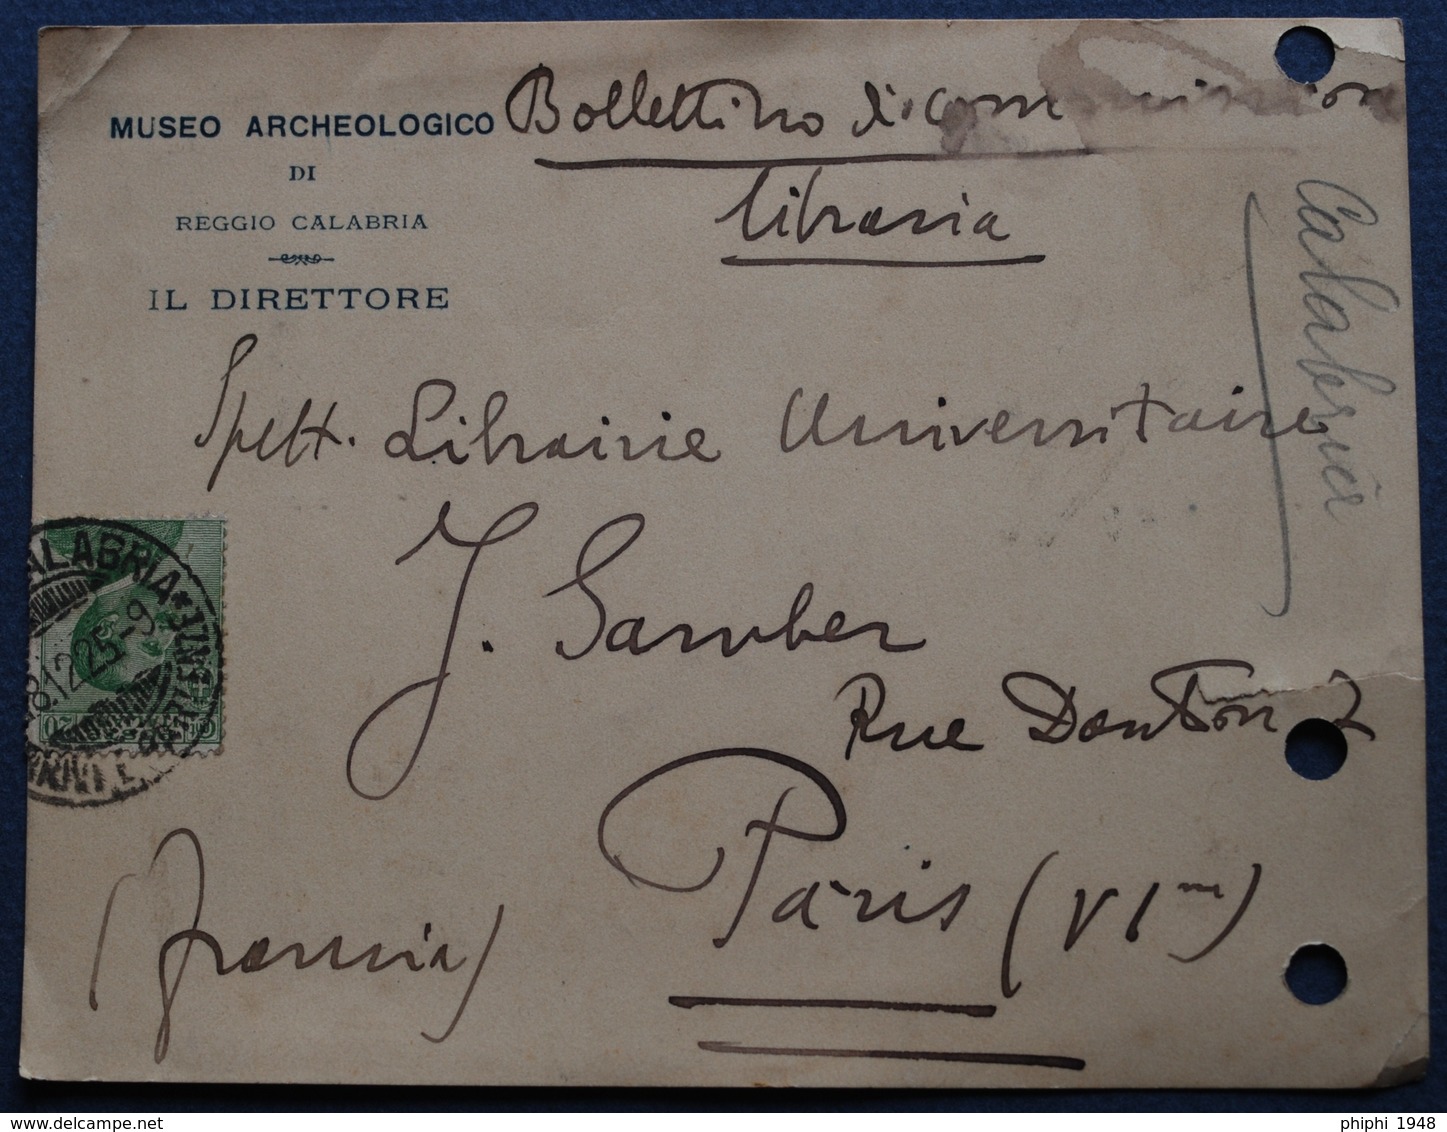 MUSEO ARCHEOLOGICO
DI
REGGIO CALABRIA
IL DIRETTORE
Bollettino di commissione
libraria
Calabria
Spett. Librairie Universitaire
J. Gamber
Rue Danton 7
Paris (VIme)
(Francia)
ALABRIA * 
18.12.25-9
20
www.delcampe.net
phiphi 1948